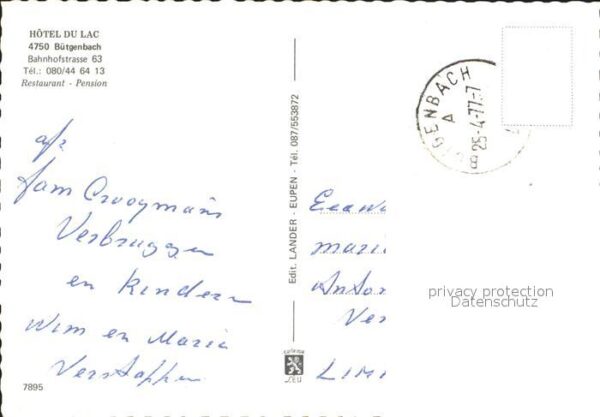 HÔTEL DU LAC
4750 Bütgenbach
Bahnhofstrasse 63
Tél.: 080/44 64 13
Restaurant - Pension
afz
fam Crooymans
Verbruggen
en kinderen
Wim en Maria
Verstappen
7895
Edit. LANDER - EUPEN - Tél. 087/553872
BÜTGENBACH
A
25-4-77-7
Eeuw
maria
Anton
Ver
LIM
privacy protection
Datenschutz